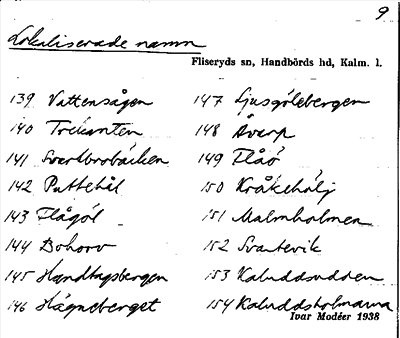 9
Lokaliserade namn
Fliseryds sn, Handbörds hd, Kalm. l.
139 Vattensågen
140 Trekanten
141 Svartbrobäcken
142 Puttehål
143 Flågöl
144 Bohorv
145 Handtagsbergen
146 Hägneberget
147 Ljusgölebergen
148 Åvarp
149 Flåö
150 Kråkehölj
151 Malmholmen
152 Svartevik
153 Kaluddsudden
154 Kaluddsholmarna
Ivar Modéer 1938